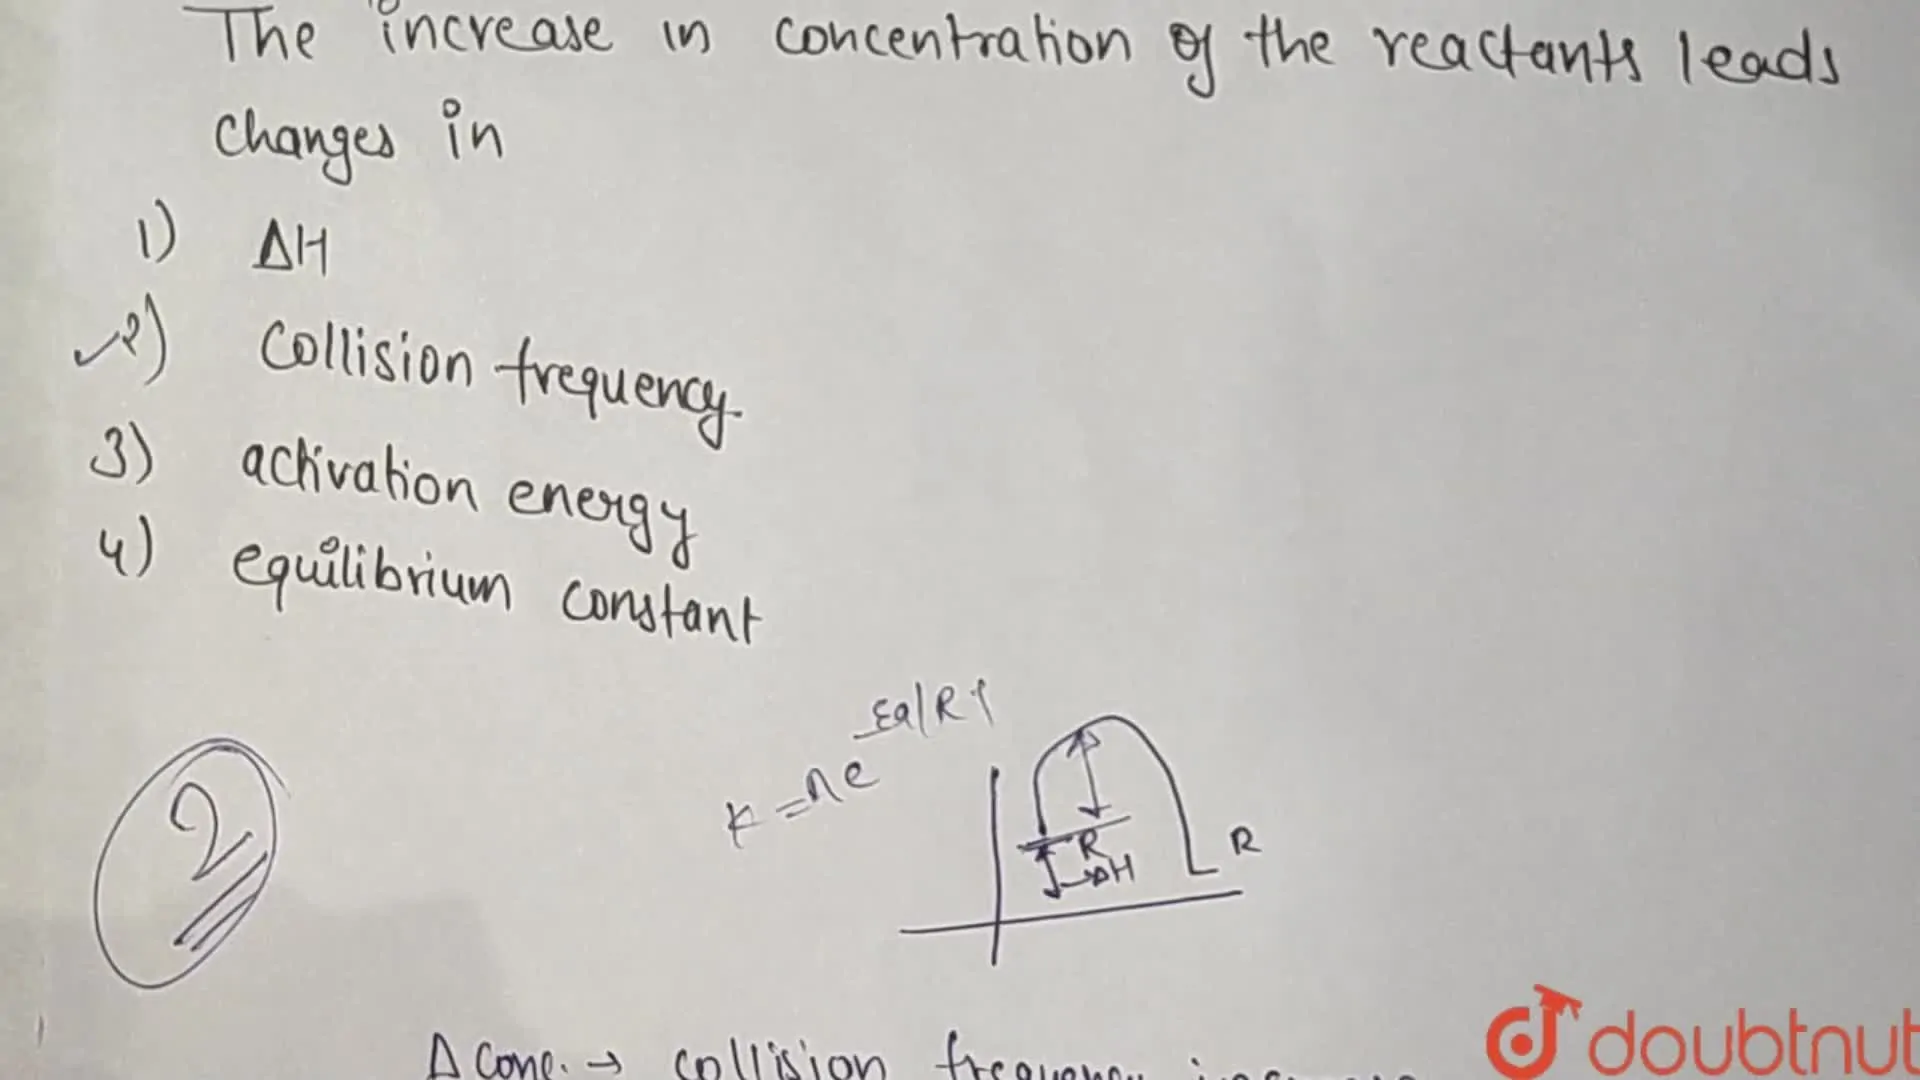 The increase in concentration of the reactants leads
changes in
1) ΔH
2) Collision frequency.
3) activation energy
4) equilibrium constant
K = ne
Ea/R
R
ΔH
R
2
Δ Conc. → collision frequency
doubtnut